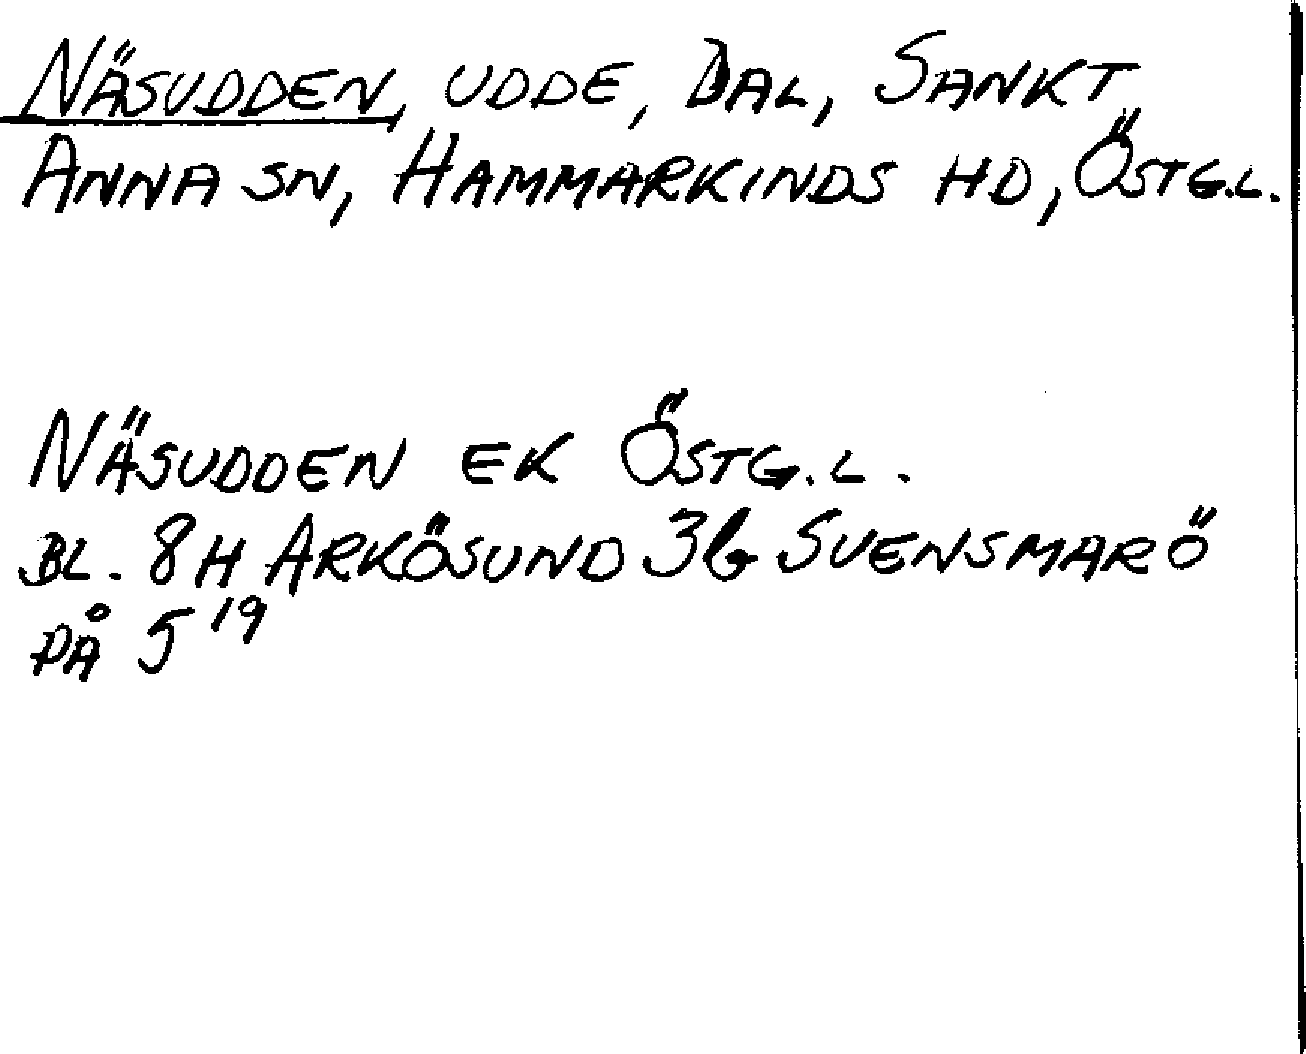 NÄSUDDEN, UDDE, DAL, SANKT
ANNA SN, HAMMARKINDS HD, ÖSTG.L.
NÄSUDDEN EK ÖSTG.L.
BL. 8H ARKÖSUND 3b SVENSMARÖ
PÅ 5 19